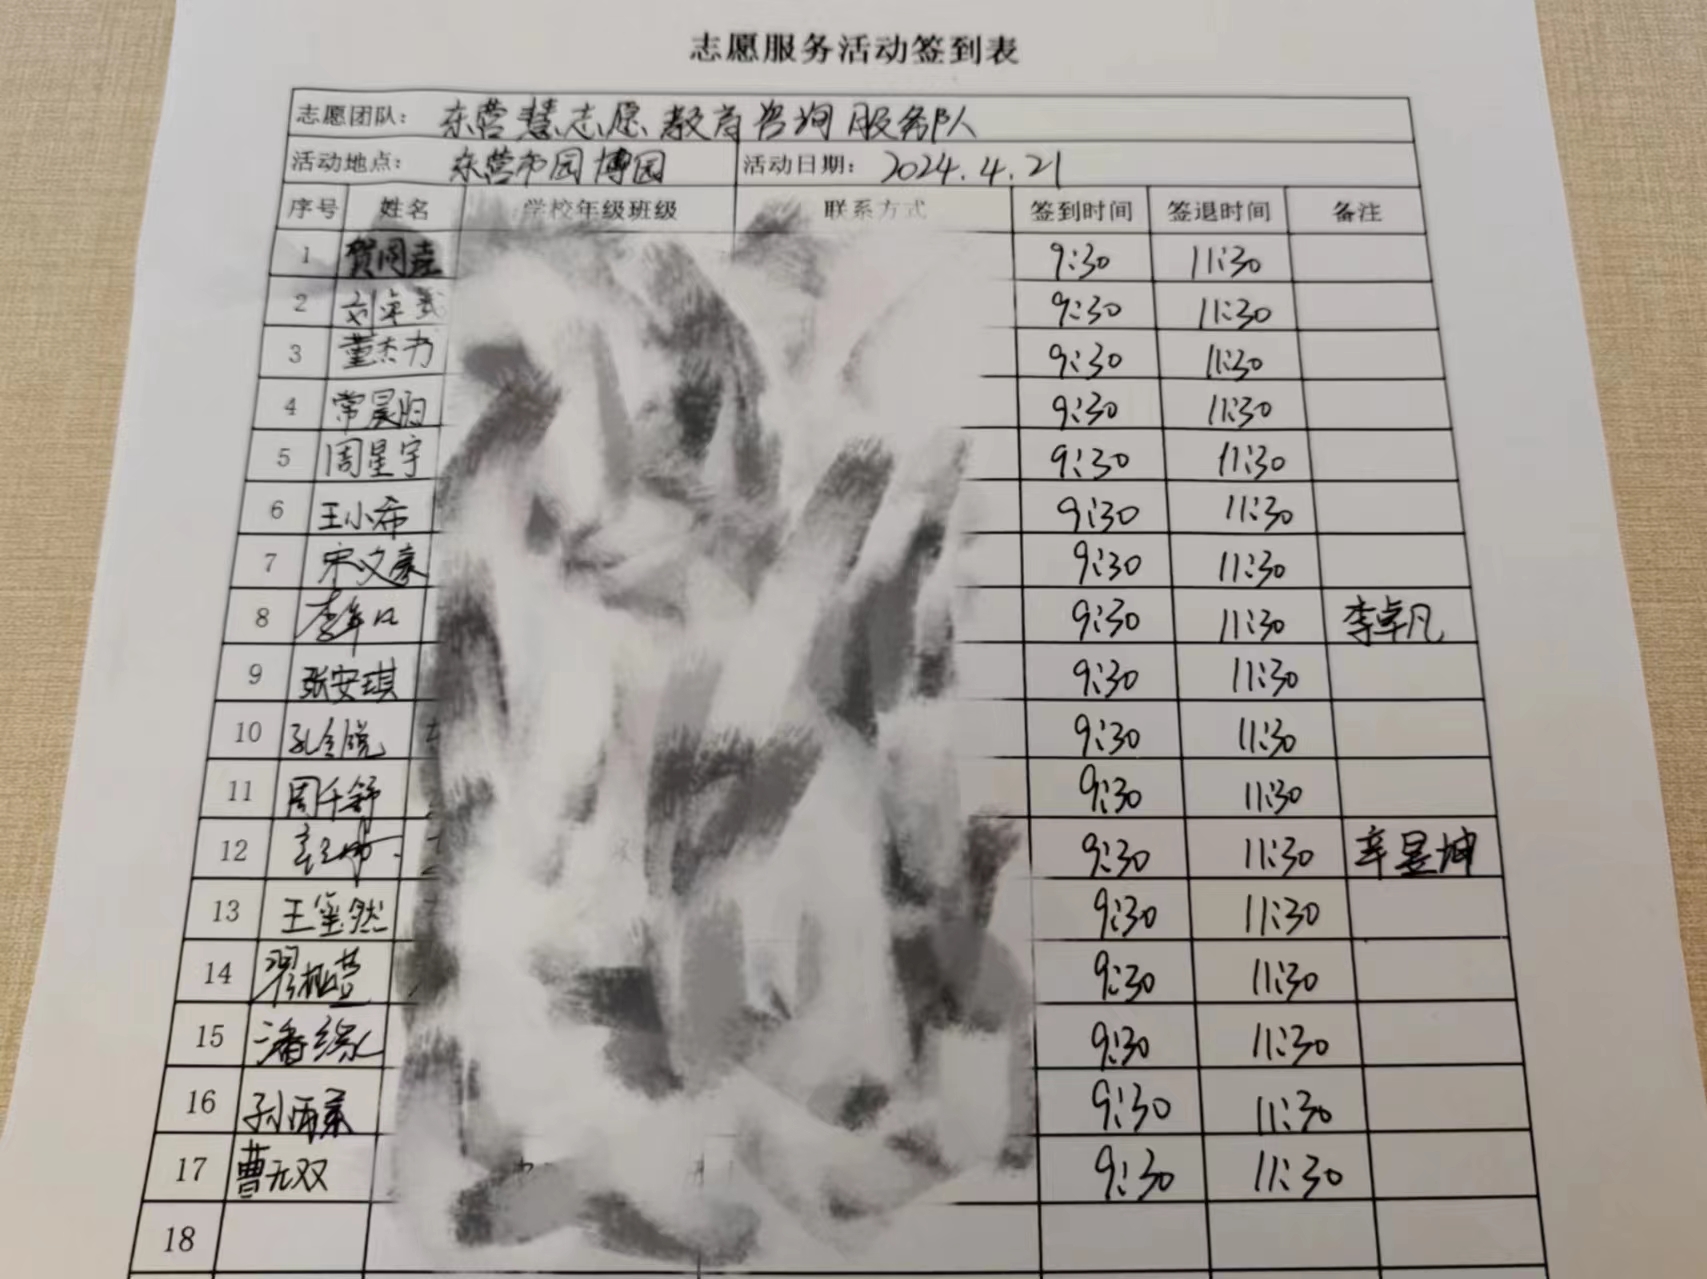 志愿服务活动签到表
志愿团队： 东营慧志愿教育咨询服务队
活动地点： 东营市园博园 活动日期： 2024.4.21
序号 姓名 学校年级班级 联系方式 签到时间 签退时间 备注
1 9:30 11:30
2 9:30 11:30
3 董杰力 9:30 11:30
4 9:30 11:30
5 周星宇 9:30 11:30
6 王小希 9:30 11:30
7 宋文豪 9:30 11:30
8 9:30 11:30 李卓凡
9 张安琪 9:30 11:30
10 9:30 11:30
11 周千舒 9:30 11:30
12 9:30 11:30 辛昱坤
13 9:30 11:30
14 9:30 11:30
15 潘缘 9:30 11:30
16 9:30 11:30
17 曹无双 9:30 11:30
18